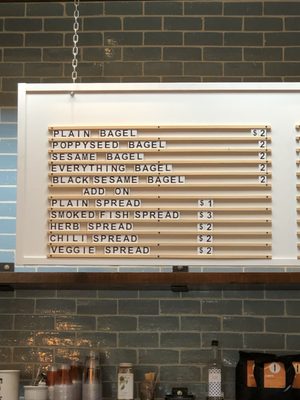 PLAIN BAGEL $2
POPPYSEED BAGEL 2
SESAME BAGEL 2
EVERYTHING BAGEL 2
BLACK SESAME BAGEL 2
ADD ON
PLAIN SPREAD $1
SMOKED FISH SPREAD $3
HERB SPREAD $2
CHILI SPREAD $2
VEGGIE SPREAD $2